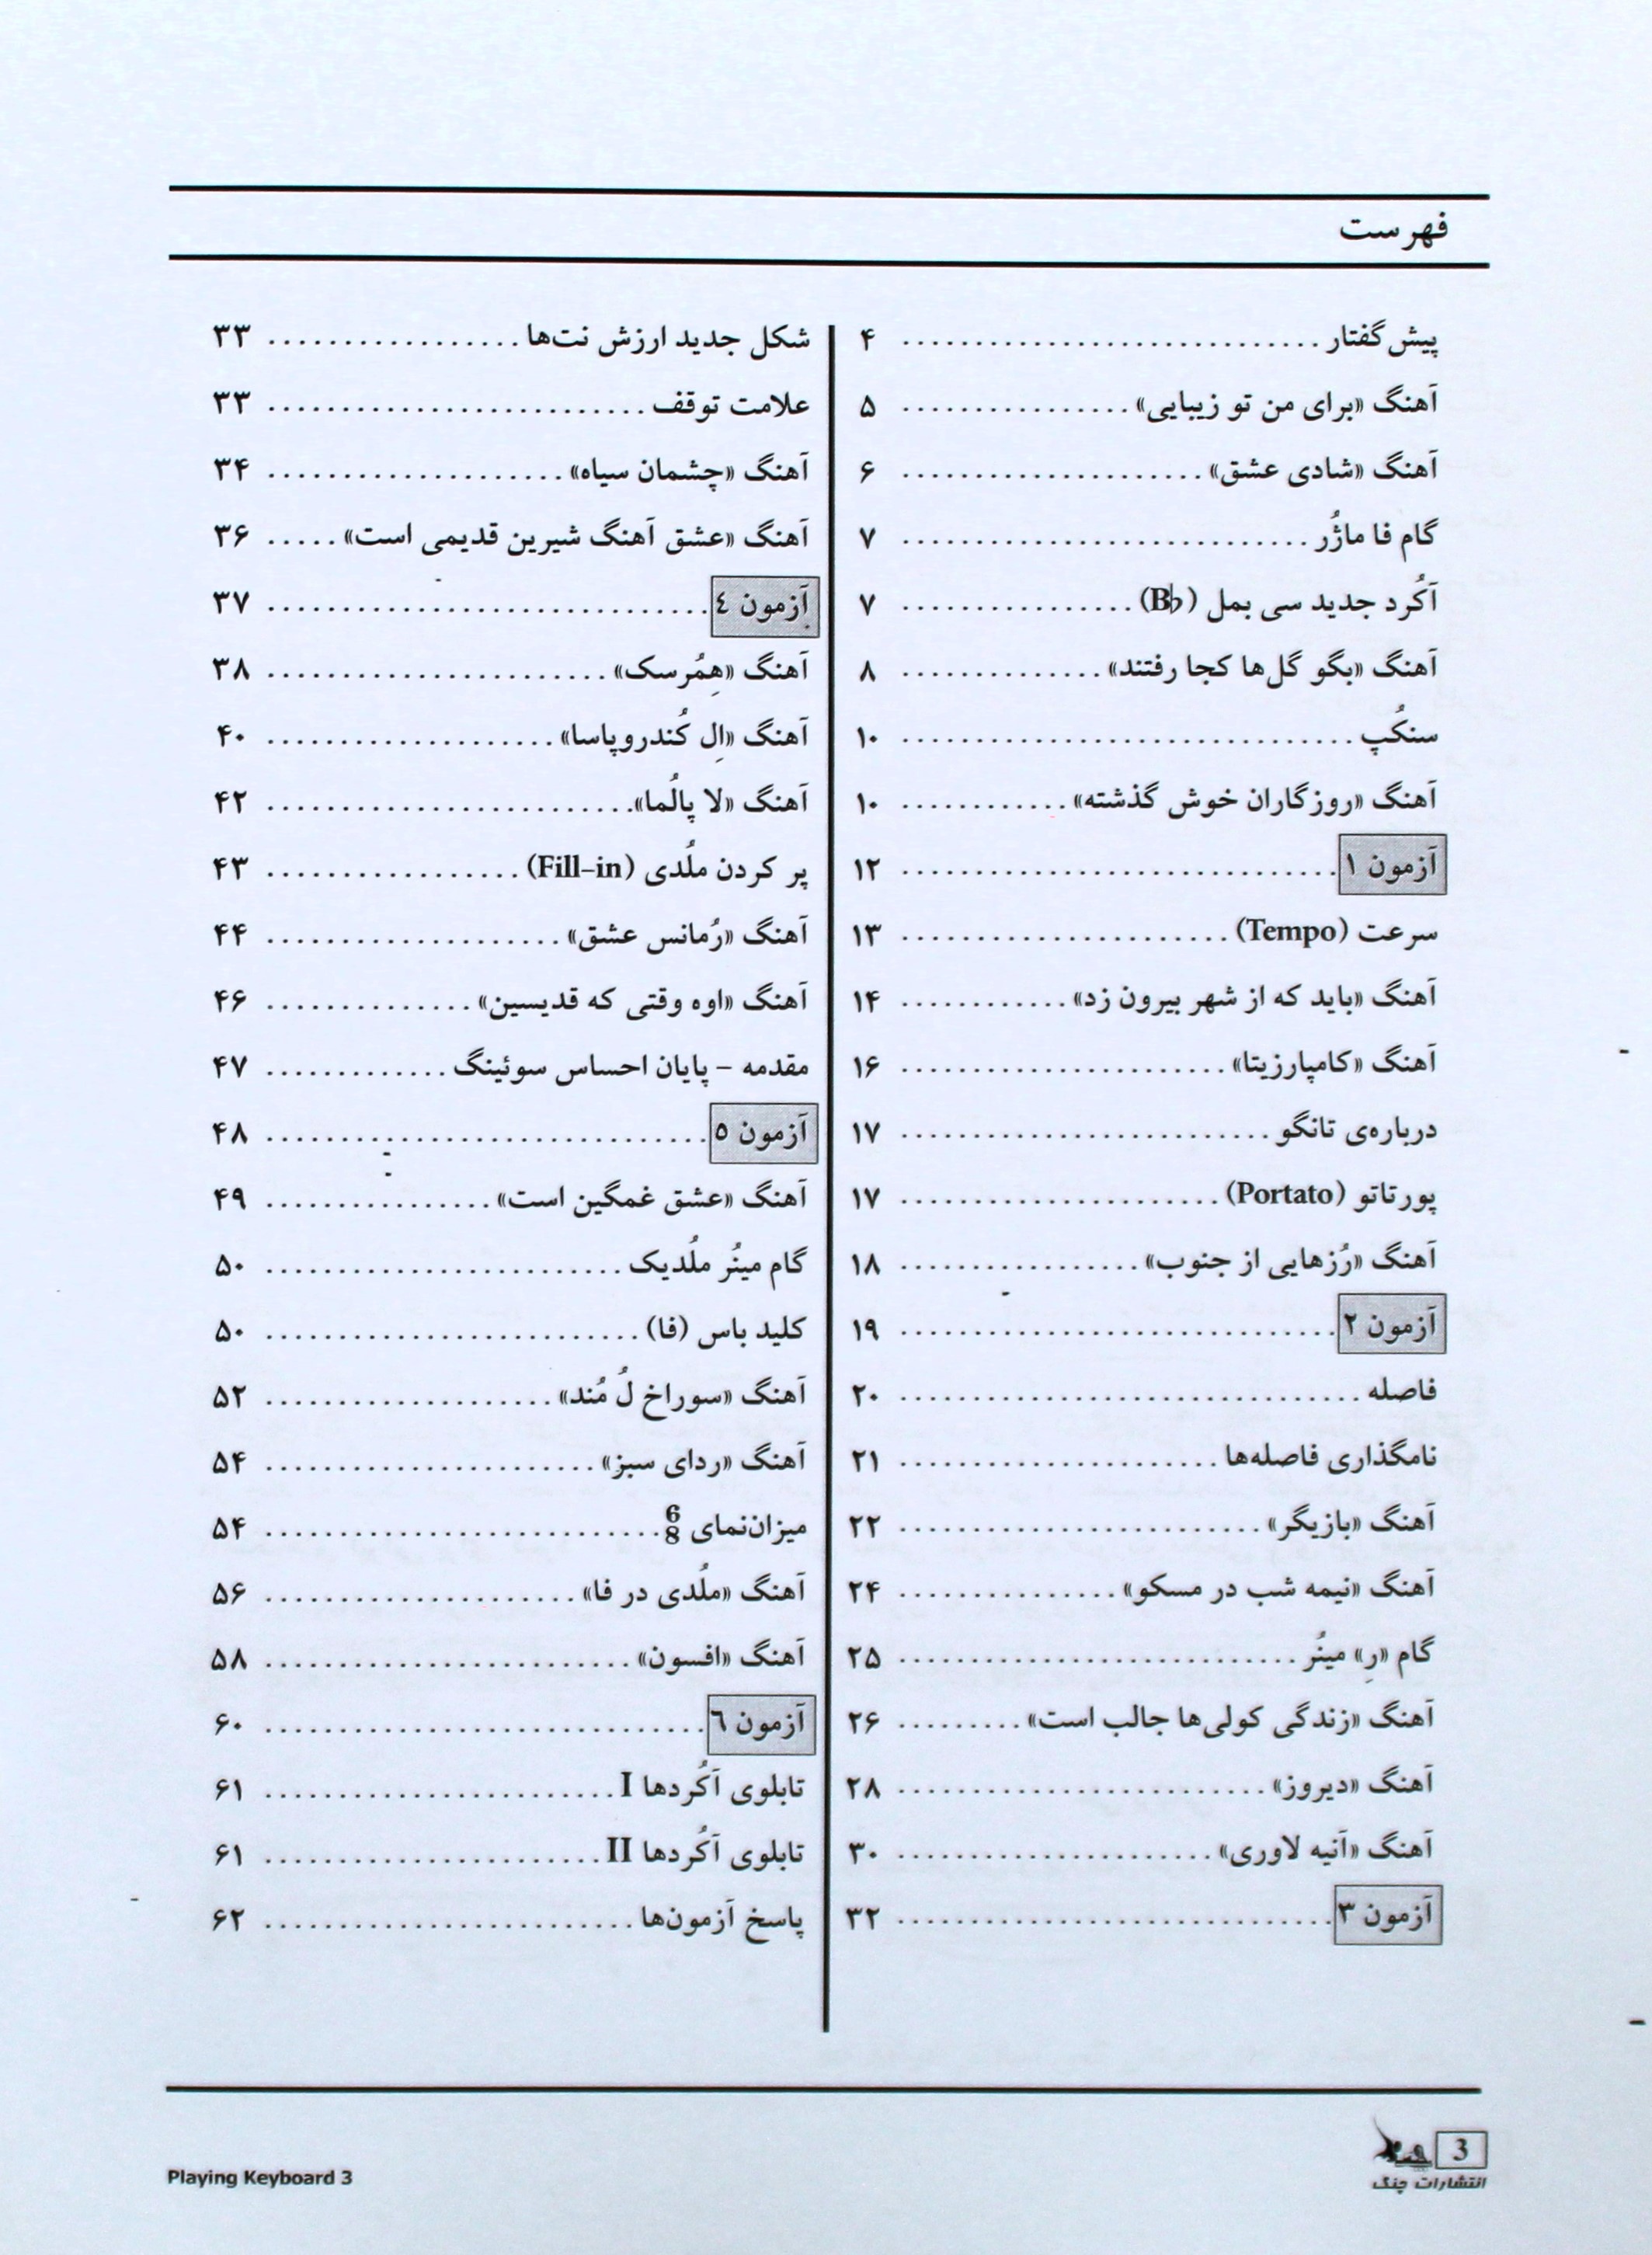 فهرست
پیش‌گفتار .............................. ۴
آهنگ «برای من تو زیبایی» ................... ۵
آهنگ «شادی عشق» ......................... ۶
گام فا ماژُر ................................. ۷
آکُرد جدید سی بمل (B♭) ................... ۷
آهنگ «بگو گل‌ها کجا رفتند» ................. ۸
سنکُپ ..................................... ۱۰
آهنگ «روزگاران خوش گذشته» .............. ۱۰
آزمون ۱ .................................... ۱۲
سرعت (Tempo) ........................... ۱۳
آهنگ «باید که از شهر بیرون زد» .............. ۱۴
آهنگ «کامپارزیتا» .......................... ۱۶
درباره‌ی تانگو .............................. ۱۷
پورتاتو (Portato) .......................... ۱۷
آهنگ «رُزهایی از جنوب» .................... ۱۸
آزمون ۲ .................................... ۱۹
فاصله ...................................... ۲۰
نامگذاری فاصله‌ها .......................... ۲۱
آهنگ «بازیگر» .............................. ۲۲
آهنگ «نیمه شب در مسکو» .................. ۲۴
گام «رِ» مینُر ................................ ۲۵
آهنگ «زندگی کولی‌ها جالب است» .......... ۲۶
آهنگ «دیروز» .............................. ۲۸
آهنگ «آنیه لاوری» .......................... ۳۰
آزمون ۳ .................................... ۳۲
شکل جدید ارزش نت‌ها ..................... ۳۳
علامت توقف ............................... ۳۳
آهنگ «چشمان سیاه» ........................ ۳۴
آهنگ «عشق آهنگ شیرین قدیمی است» ..... ۳۶
آزمون ٤ .................................... ۳۷
آهنگ «هِمُرسک» ............................ ۳۸
آهنگ «اِل کُندروپاسا» ........................ ۴۰
آهنگ «لا پالُما» .............................. ۴۲
پر کردن ملُدی (Fill-in) ..................... ۴۳
آهنگ «رُمانس عشق» ........................ ۴۴
آهنگ «اوه وقتی که قدیسین» ................. ۴۶
مقدمه – پایان احساس سوئینگ ............... ۴۷
آزمون ٥ .................................... ۴۸
آهنگ «عشق غمگین است» ................... ۴۹
گام مینُر ملُدیک ............................. ۵۰
کلید باس (فا) ............................... ۵۰
آهنگ «سوراخ لُ مُند» ........................ ۵۲
آهنگ «ردای سبز» ........................... ۵۴
میزان‌نمای 6/8 ............................... ۵۴
آهنگ «ملُدی در فا» .......................... ۵۶
آهنگ «افسون» .............................. ۵۸
آزمون ٦ .................................... ۶۰
تابلوی آکُردها I ............................. ۶۱
تابلوی آکُردها II ............................ ۶۱
پاسخ آزمون‌ها ............................... ۶۲
Playing Keyboard 3
3
انتشارات چنگ